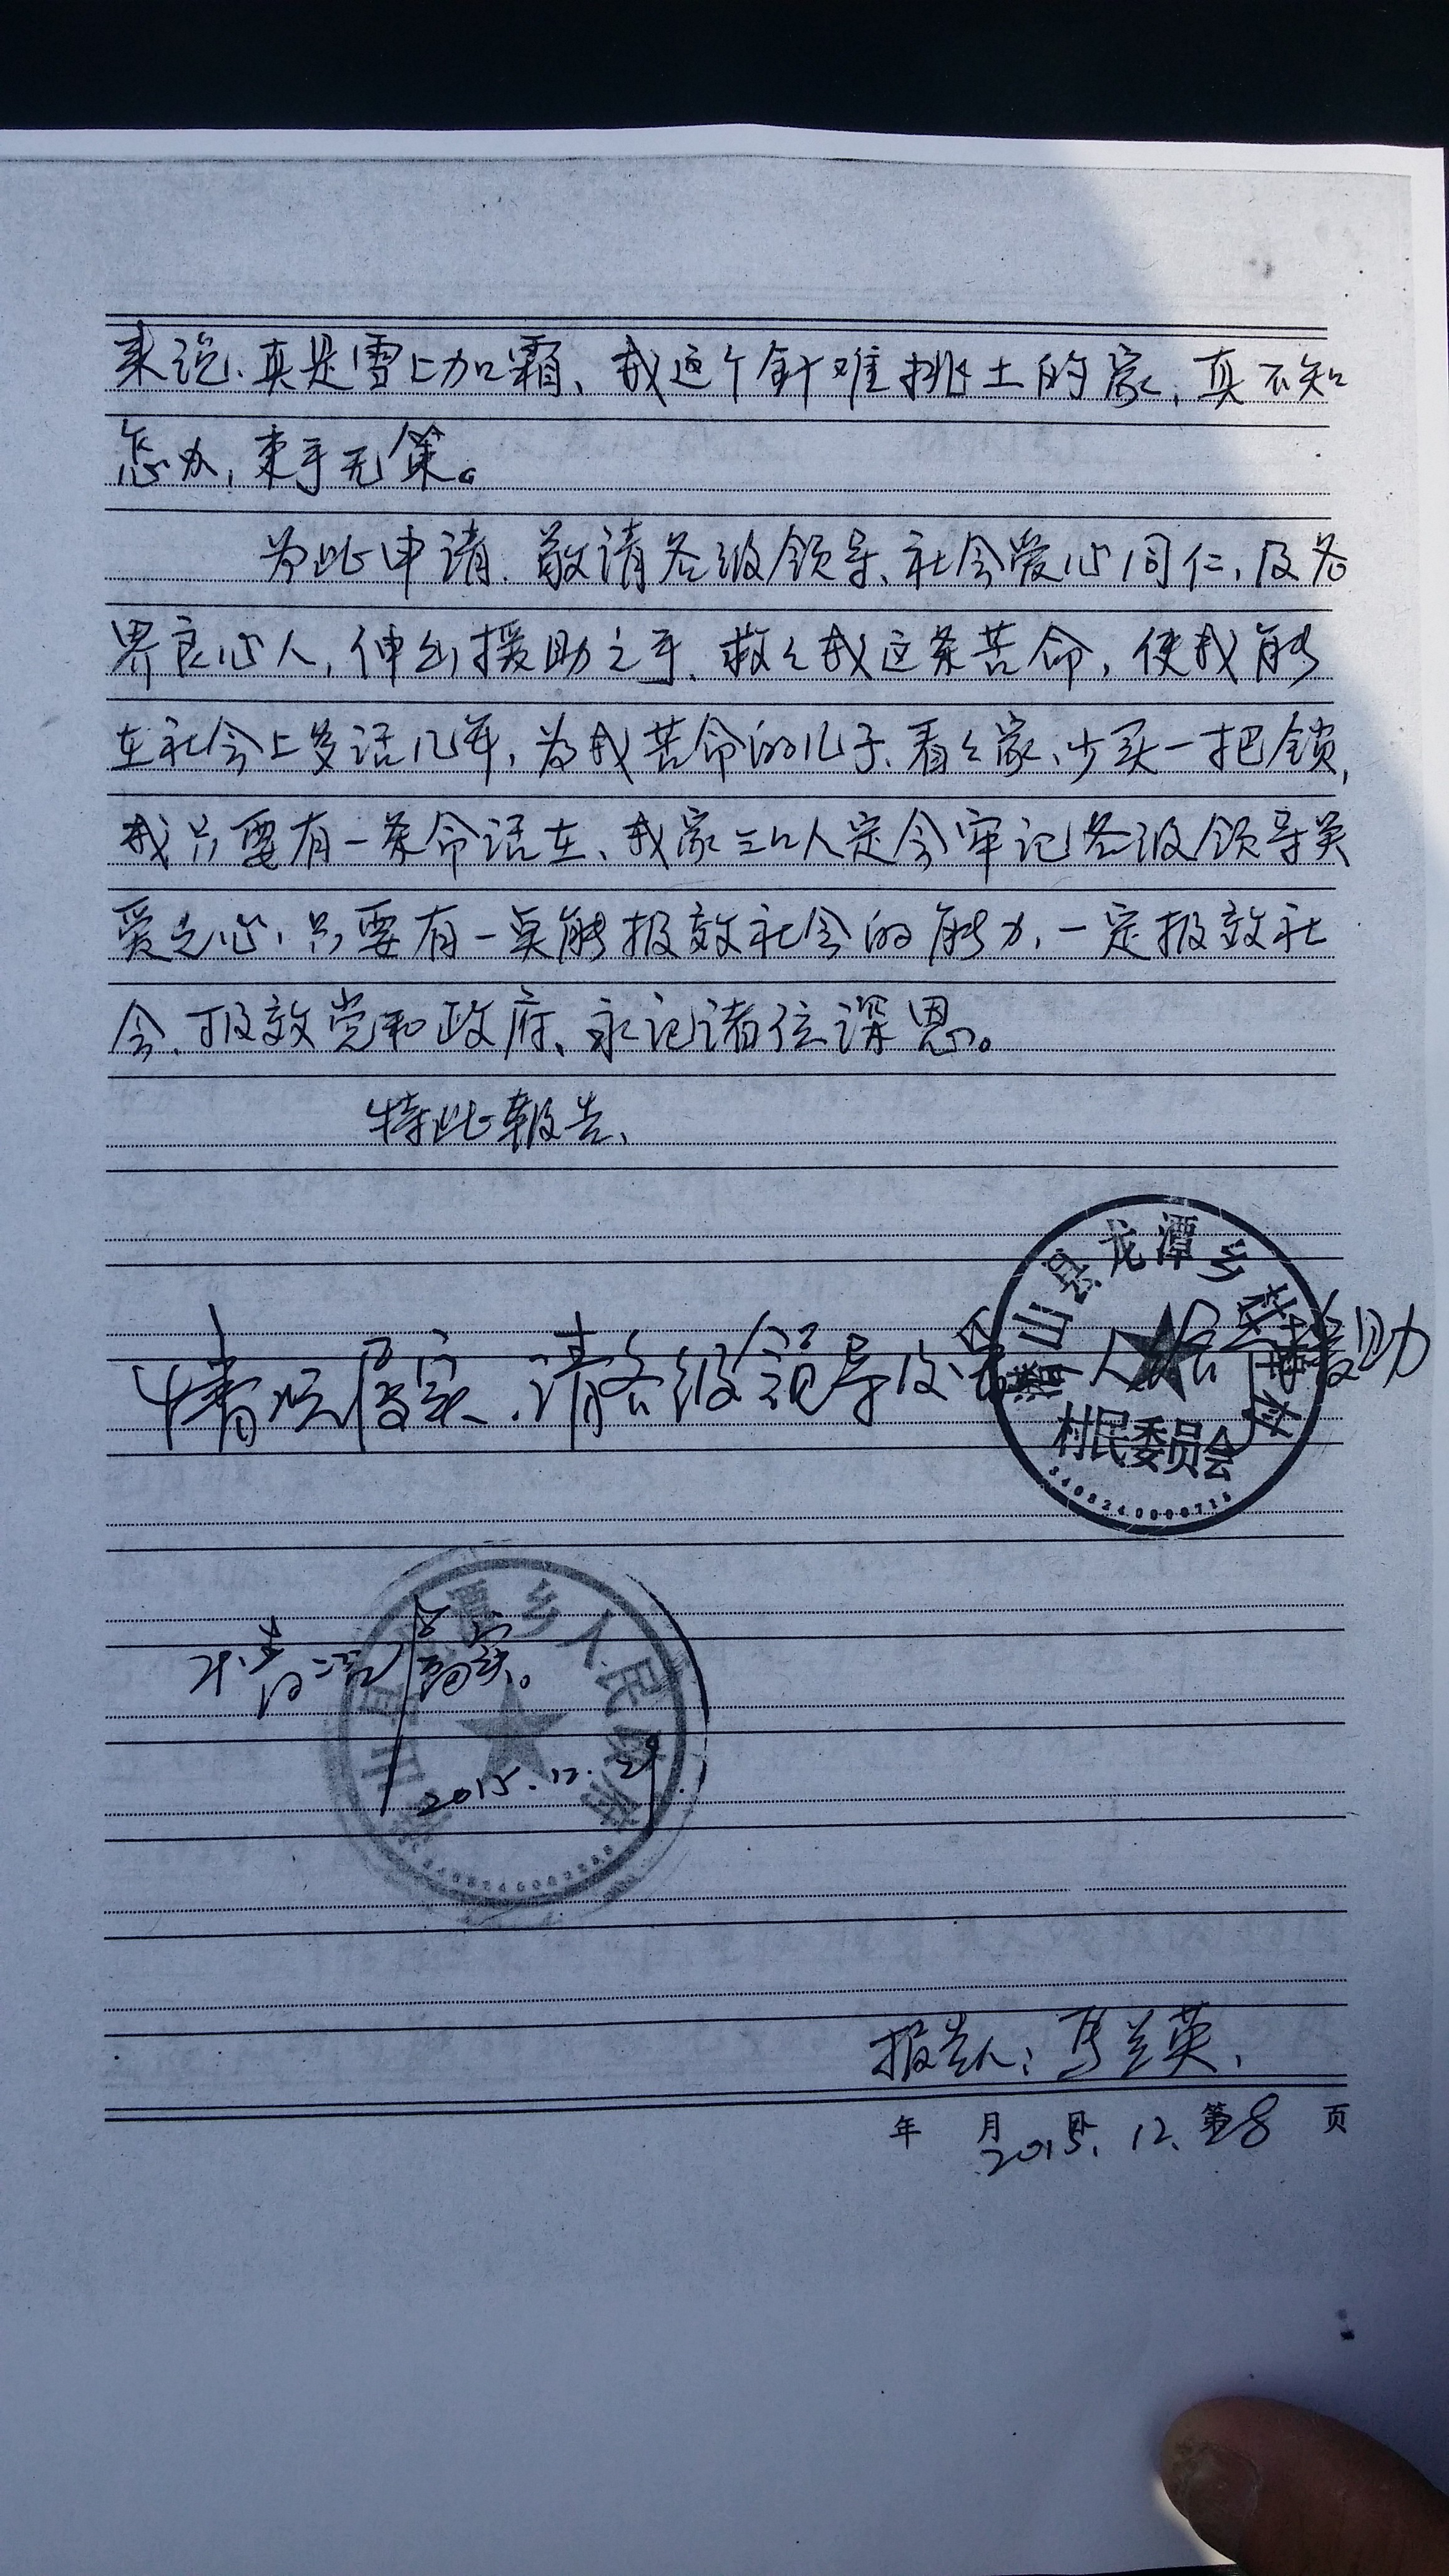 来说、真是雪上加霜、我这个针难挑土的家、真不知
怎办,束手无策。
为此申请、敬请各级领导、社会爱心同仁,及各
界良心人,伸出援助之手、救救我这条苦命,使我能
在社会上多活几年,为我苦命的儿子、看看家、少买一把锁,
我只要有一条命活在、我家三口人定会牢记各级领导关
爱之心,只要有一点能报效社会的能力,一定报效社
会、报效党和政府、永记诸位深恩。
特此报告、
山县龙潭乡
情况属实、请各级领导及 人给予援助
村民委员会
3408240000715
潭乡人民政府
情况属实。
2015.12.21
报告人:马兰英、
年 月 日 第 页
2015.12.8